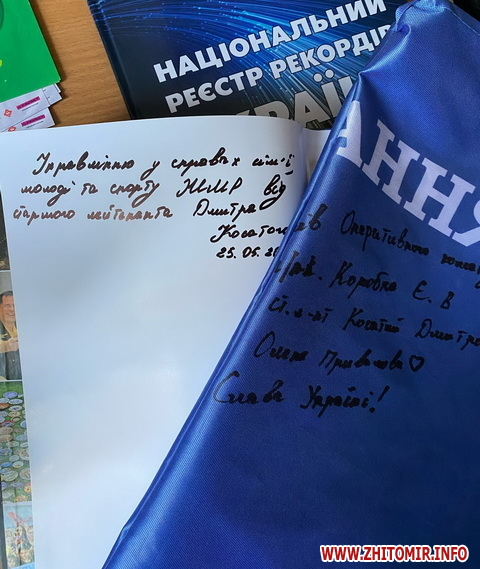 НАЦІОНАЛЬНИЙ
РЕЄСТР РЕКОРДІВ
АННЯ
Управлінню у справах сім'ї
молоді та спорту ЖМР від
старшого лейтенанта Дмитра
25.05.20
Оперативного
Коробка Є. В
ст. л-нт Косатий Дмитро
Олена Привалова ♡
Слава Україні!
WWW.ZHITOMIR.INFO